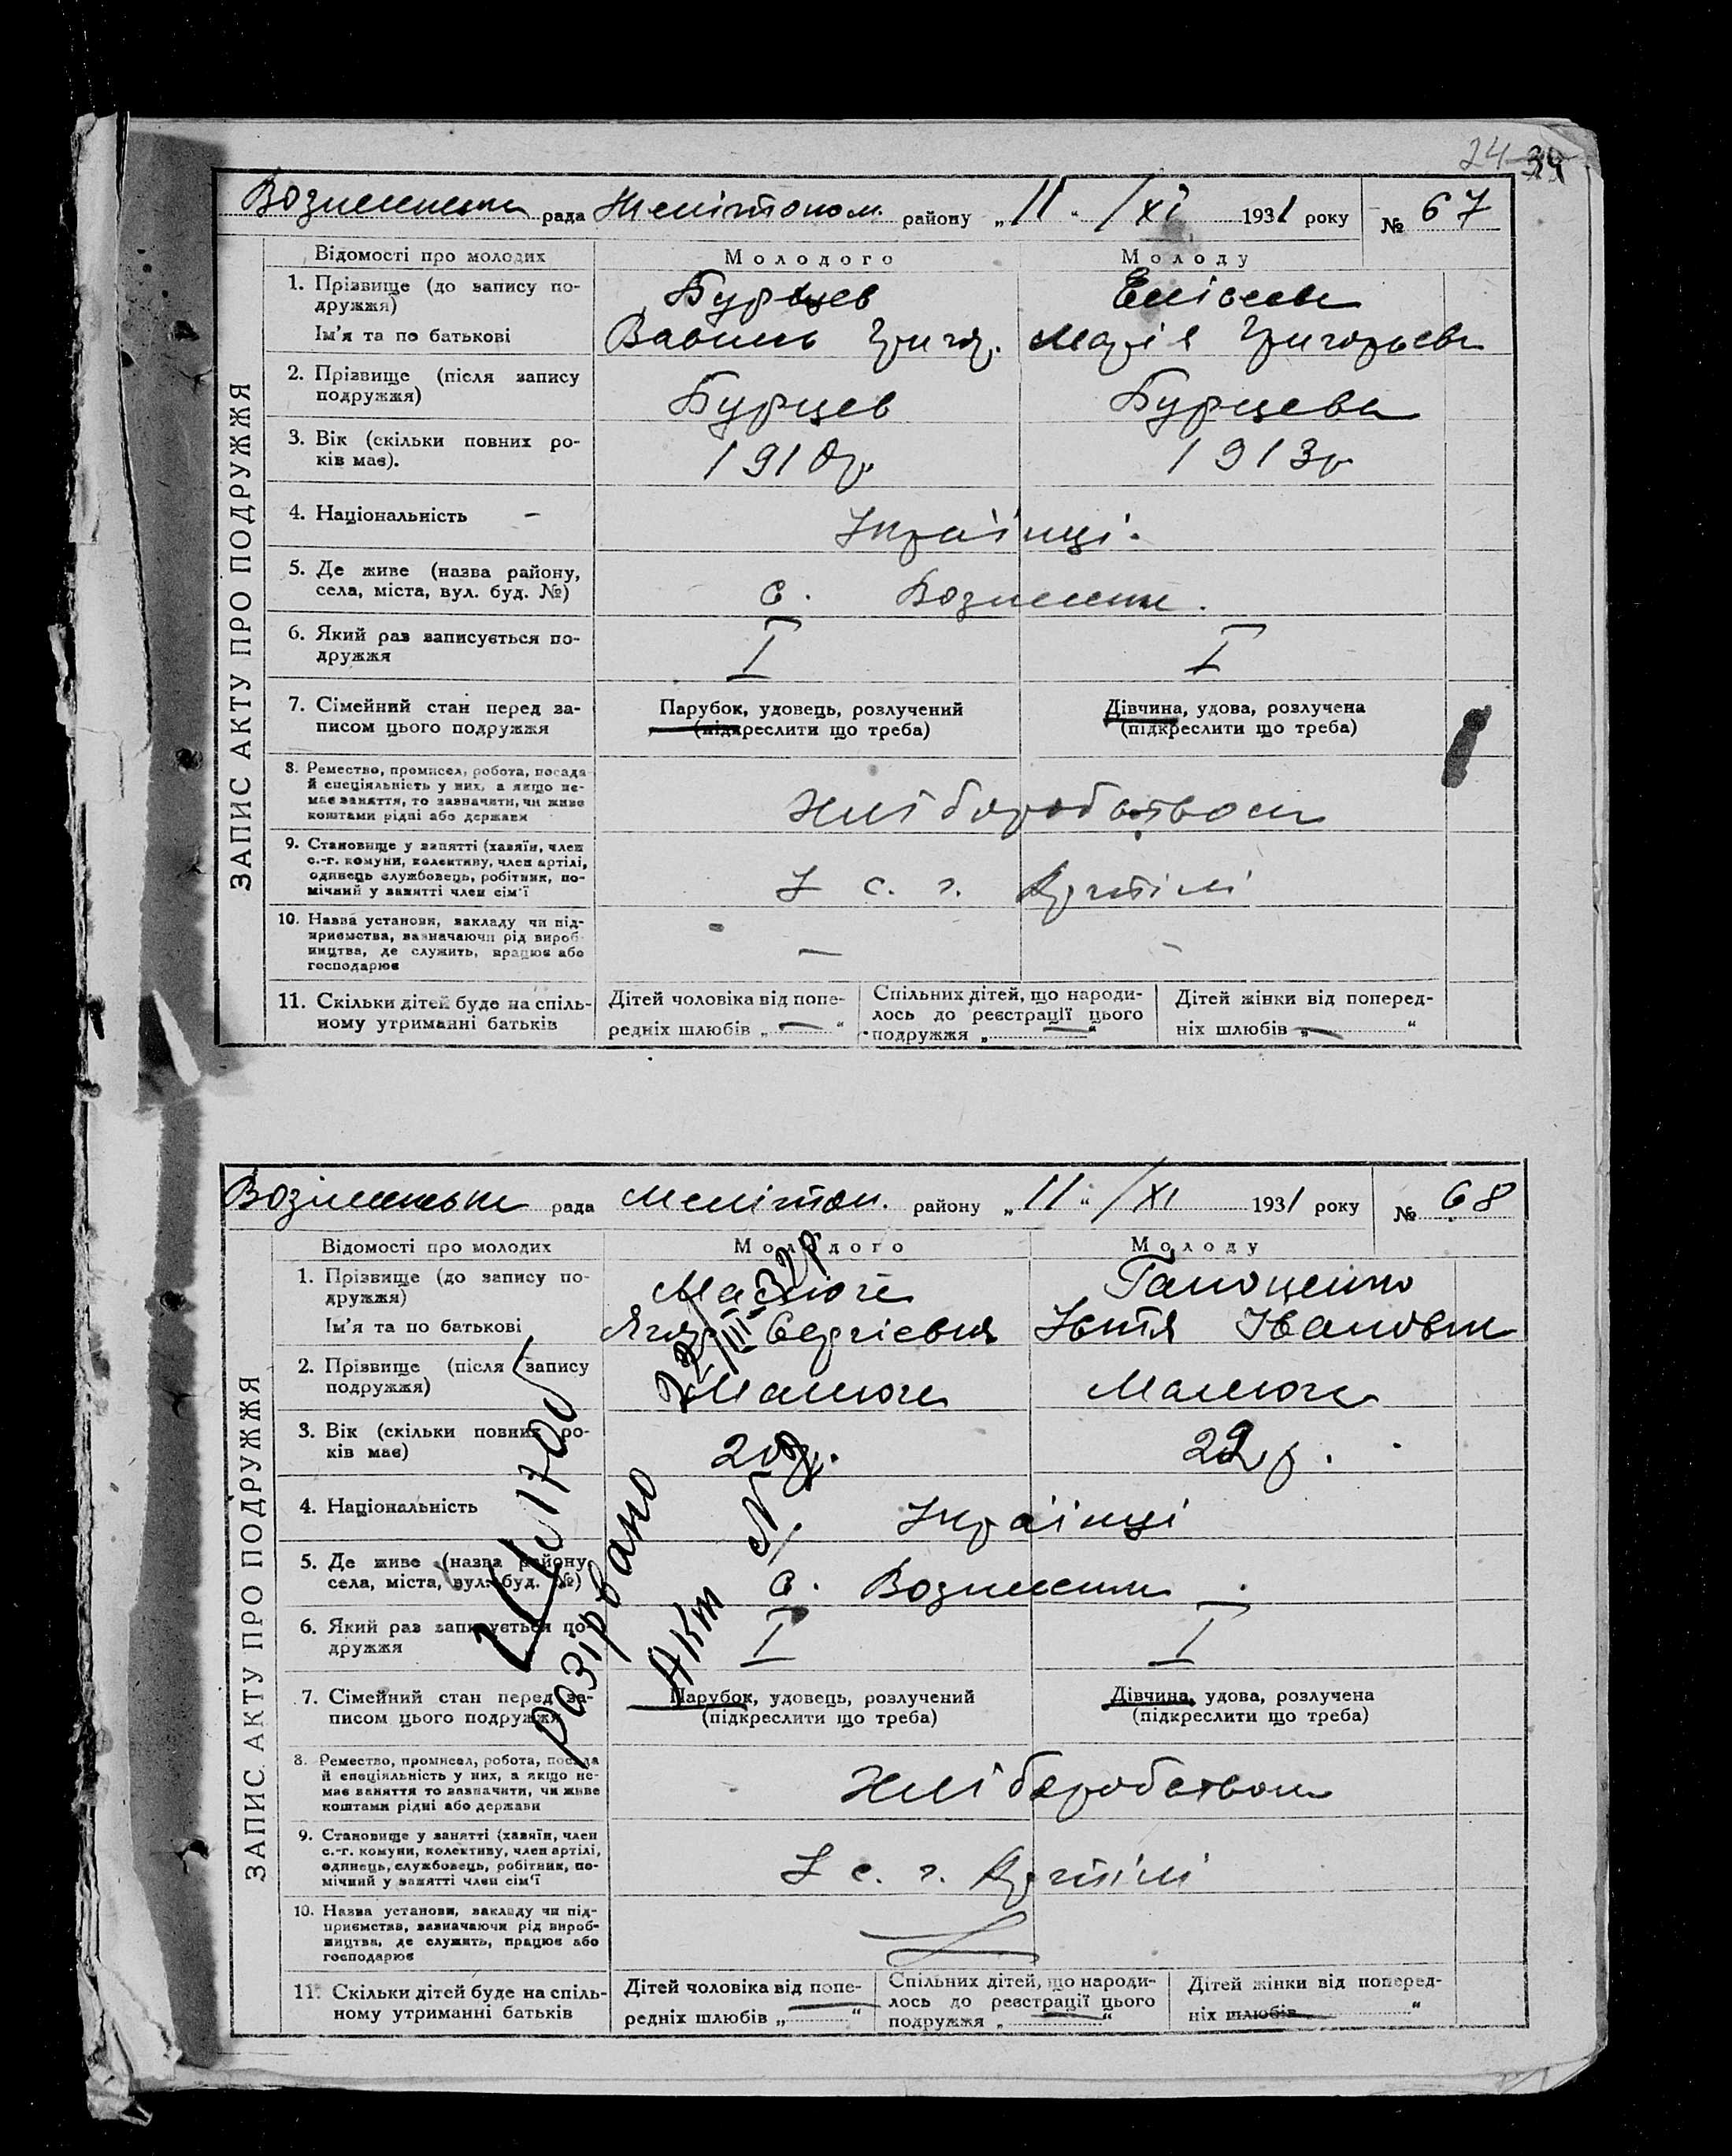 24 34
Вознесенська рада Мелітопол. району „11“ /XI 1931 року № 67
ЗАПИС АКТУ ПРО ПОДРУЖЖЯ
Відомості про молодих Молодого Молоду
1. Прізвище (до запису по-
дружжя) Бурцев Елісеева
Ім'я та по батькові Григор. Марія Григорьевна
2. Прізвище (після запису
подружжя) Бурцев Бурцева
3. Вік (скільки повних ро-
ків має). 1910р. 1913р
4. Національність – Українці.
5. Де живе (назва району,
села, міста, вул. буд. №) с. Вознесенка.
6. Який раз записується по-
дружжя I I
7. Сімейний стан перед за-
писом цього подружжя
Парубок, удовець, розлучений
(підкреслити що треба)
Дівчина, удова, розлучена
(підкреслити що треба)
8. Ремество, промисел, робота, посада
й спеціяльність у них, а якщо не-
має заняття, то зазначити, чи живе
коштами рідні або держави
Хліборобством
9. Становище у занятті (хазяїн, член
с.-г. комуни, колективу, член артілі,
одинець службовець, робітник, по-
мічний у занятті член сім'ї
У с. г. Артілі
10. Назва установи, закладу чи під-
приємства, зазначаючи рід вироб-
ництва, де служить, працює або
господарює
— –
11. Скільки дітей буде на спіль-
ному утриманні батьків
Дітей чоловіка від попе-
редніх шлюбів „—“
Спільних дітей, що народи-
лось до реєстрації цього
подружжя „—“
Дітей жінки від поперед-
ніх шлюбів „—“
Вознесенська рада Мелітоп. району „11“ /XI 1931 року № 68
ЗАПИС АКТУ ПРО ПОДРУЖЖЯ
Відомості про молодих Молодого Молоду
1. Прізвище (до запису по-
дружжя)
Ім'я та по батькові Сергієвич Івановна
2. Прізвище (після запису
подружжя) Малюга Малюга
3. Вік (скільки повних ро-
ків має) 20р. 22р.
4. Національність Українці
5. Де живе (назва району,
села, міста, вул. буд. №) с. Вознесенка.
6. Який раз записується по-
дружжя I I
7. Сімейний стан перед за-
писом цього подружжя
Парубок, удовець, розлучений
(підкреслити що треба)
Дівчина, удова, розлучена
(підкреслити що треба)
8. Ремество, промисел, робота, посада
й спеціяльність у них, а якщо не-
має заняття то зазначити, чи живе
коштами рідні або держави
Хліборобством
9. Становище у занятті (хазяїн, член
с.-г. комуни, колективу, член артілі,
одинець, службовець, робітник, по-
мічний у занятті член сім'ї
У с. г. Артілі
10. Назва установи, закладу чи під-
приємства, зазначаючи рід вироб-
ництва, де служить, працює або
господарює
11. Скільки дітей буде на спіль-
ному утриманні батьків
Дітей чоловіка від попе-
редніх шлюбів „“
Спільних дітей, що народи-
лось до реєстрації цього
подружжя „“
Дітей жінки від поперед-
ніх шлюбів “
розірвано
Акт №